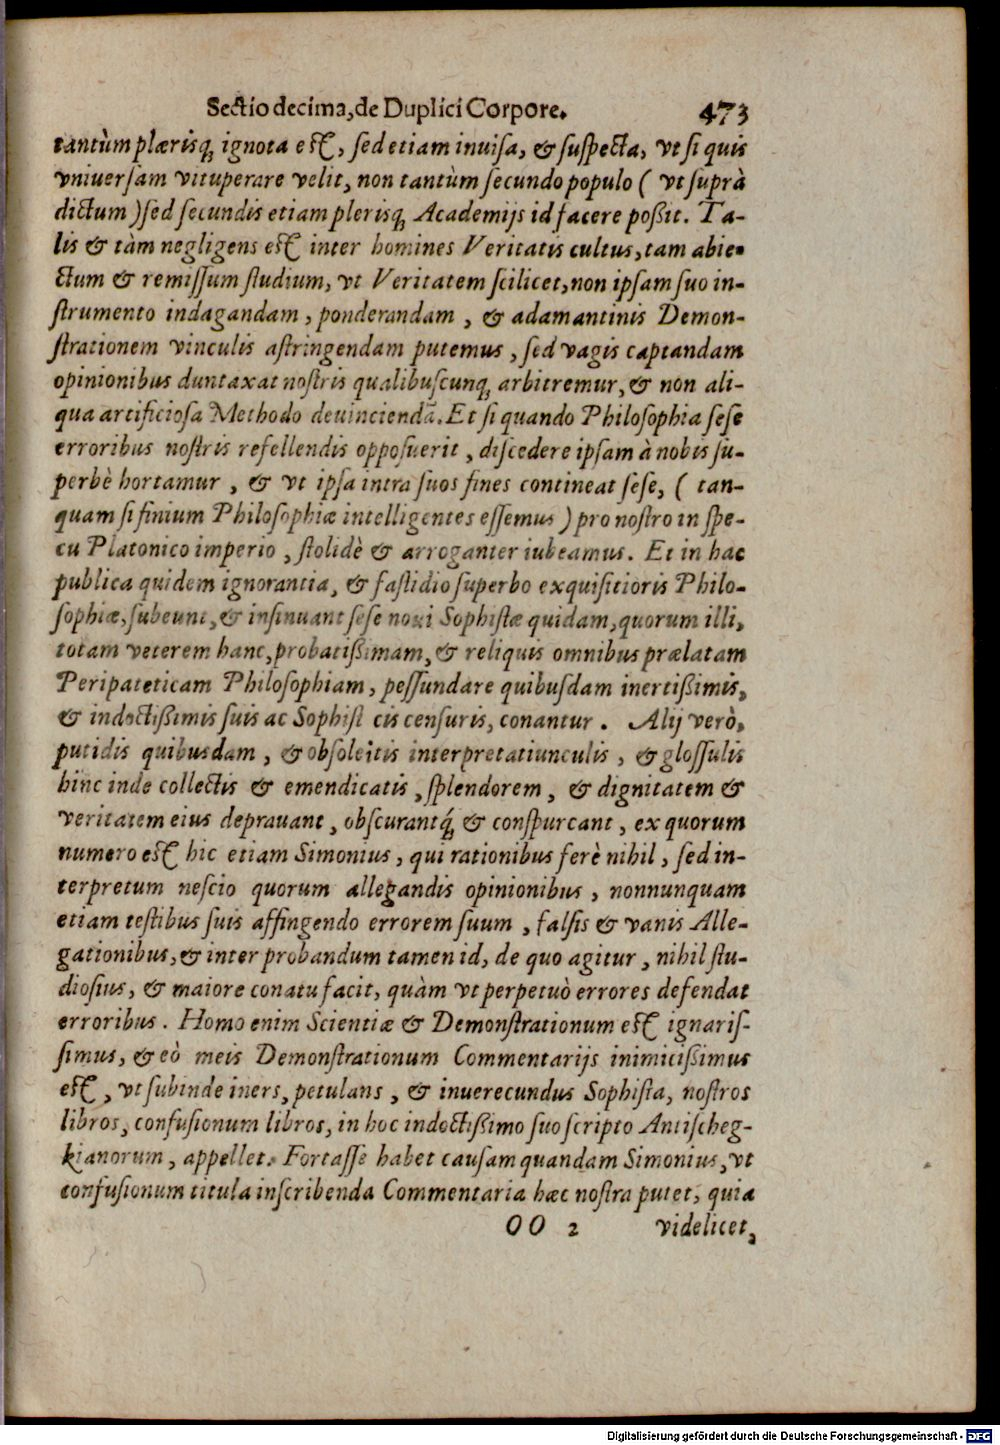 Sectio decima, de Duplici Corpore. 473
tantùm plærisq; ignota est, sed etiam inuisa, & suspecta, vt si quis
vniuersam vituperare velit, non tantùm secundo populo ( vt suprà
dictum ) sed secundis etiam plerisq; Academijs id facere poßit. Ta-
lis & tàm negligens est inter homines Veritatis cultus, tam abie-
ctum & remissum studium, vt Veritatem scilicet, non ipsam suo in-
strumento indagandam, ponderandam, & adamantinis Demon-
strationem vinculis astringendam putemus, sed vagis captandam
opinionibus duntaxat nostris qualibuscunq; arbitremur, & non ali-
qua artificiosa Methodo deuinciendã. Et si quando Philosophia sese
erroribus nostris refellendis opposuerit, discedere ipsam à nobis su-
perbè hortamur, & vt ipsa intra suos fines contineat sese, ( tan-
quam si finium Philosophiæ intelligentes essemus ) pro nostro in spe-
cu Platonico imperio, stolidè & arroganter iubeamus. Et in hac
publica quidem ignorantia, & fastidio superbo exquisitioris Philo-
sophiæ, subeunt, & insinuant sese noui Sophistæ quidam, quorum illi,
totam veterem hanc, probatißimam, & reliquis omnibus prælatam
Peripateticam Philosophiam, pessundare quibusdam inertißimis,
& indoctißimis suis ac Sophist cis censuris, conantur. Alij verò,
putidis quibusdam, & obsoletis interpretatiunculis, & glossulis
hinc inde collectis & emendicatis, splendorem, & dignitatem &
veritatem eius deprauant, obscurantq́; & conspurcant, ex quorum
numero est hic etiam Simonius, qui rationibus ferè nihil, sed in-
terpretum nescio quorum allegandis opinionibus, nonnunquam
etiam testibus suis affingendo errorem suum, falsis & vanis Alle-
gationibus, & inter probandum tamen id, de quo agitur, nihil stu-
diosius, & maiore conatu facit, quàm vt perpetuò errores defendat
erroribus. Homo enim Scientiæ & Demonstrationum est ignaris-
simus, & eò meis Demonstrationum Commentarijs inimicißimus
est, vt subinde iners, petulans, & inuerecundus Sophista, nostros
libros, confusionum libros, in hoc indoctißimo suo scripto Antischeg-
kianorum, appellet. Fortasse habet causam quandam Simonius, vt
confusionum titula inscribenda Commentaria hæc nostra putet, quia
OO 2 videlicet,
Digitalisierung gefördert durch die Deutsche Forschungsgemeinschaft - DFG